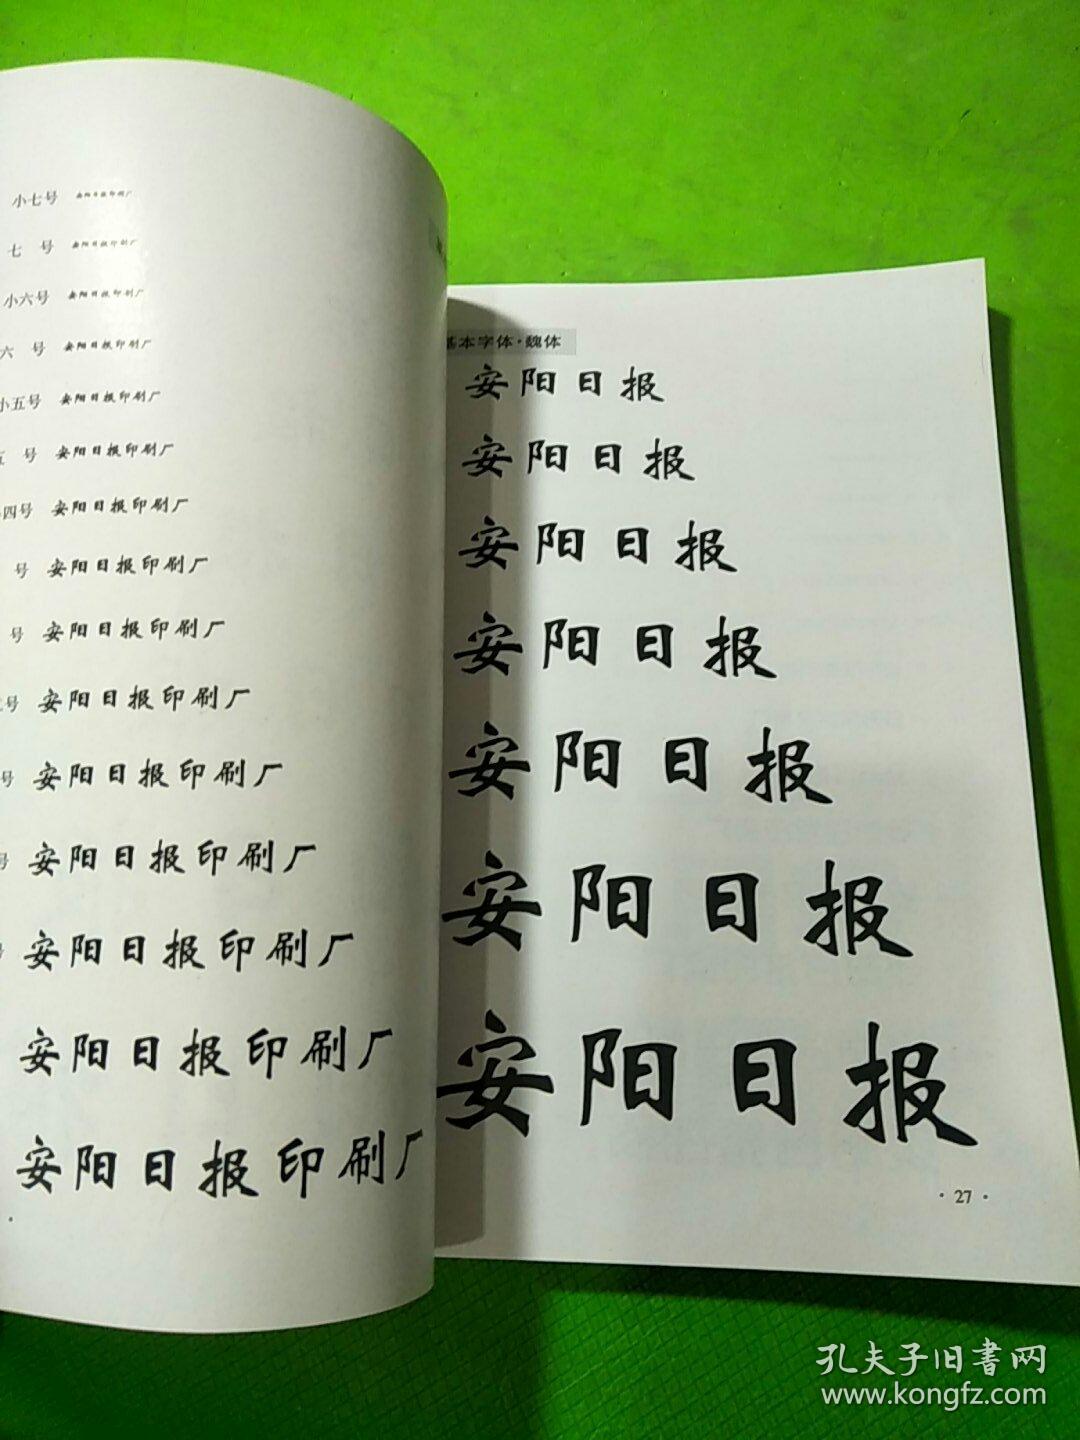 小七号 安阳日报印刷厂
七 号 安阳日报印刷厂
小六号 安阳日报印刷厂
六 号 安阳日报印刷厂
小五号 安阳日报印刷厂
五 号 安阳日报印刷厂
四号 安阳日报印刷厂
号 安阳日报印刷厂
号 安阳日报印刷厂
号 安阳日报印刷厂
号 安阳日报印刷厂
号 安阳日报印刷厂
号 安阳日报印刷厂
安阳日报印刷厂
安阳日报印刷厂
基本字体·魏体
安阳日报
安阳日报
安阳日报
安阳日报
安阳日报
安阳日报
安阳日报
· 27 ·
孔夫子旧書网
www.kongfz.com